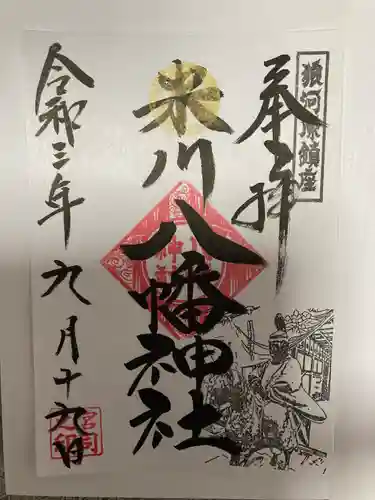 猿河原鎮座
奉拝
米川八幡神社
令和三年九月十九日
宮司之印